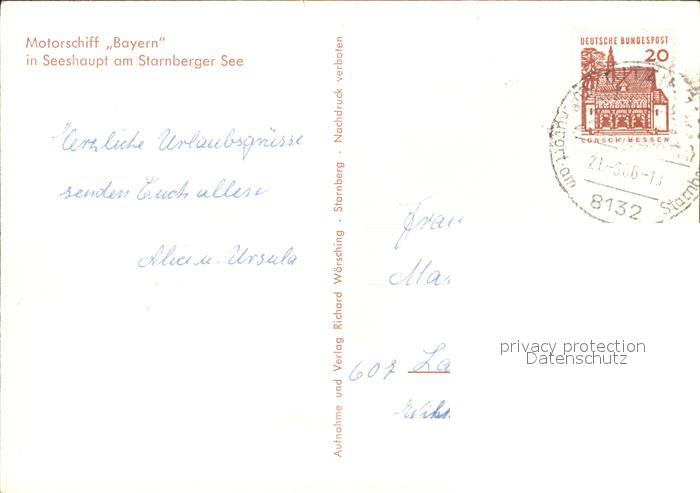 Motorschiff „Bayern“
in Seeshaupt am Starnberger See
Herzliche Urlaubsgrüsse
senden Euch allen
Alice u. Ursula
Aufnahme und Verlag Richard Wörsching · Starnberg · Nachdruck verboten
DEUTSCHE BUNDESPOST
20
LORSCH/HESSEN
21.-5.66-13
8132
Starnbe
Frau
Ma
607 La
privacy protection
Datenschutz